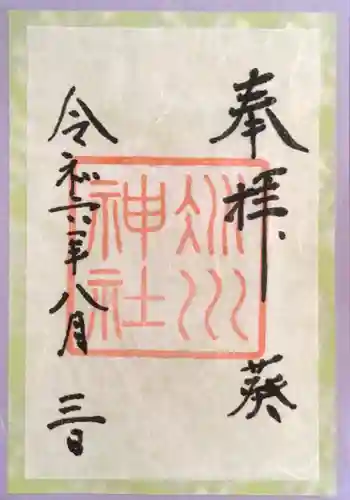 奉拝
葵
冰川
神社
令和六年八月三日